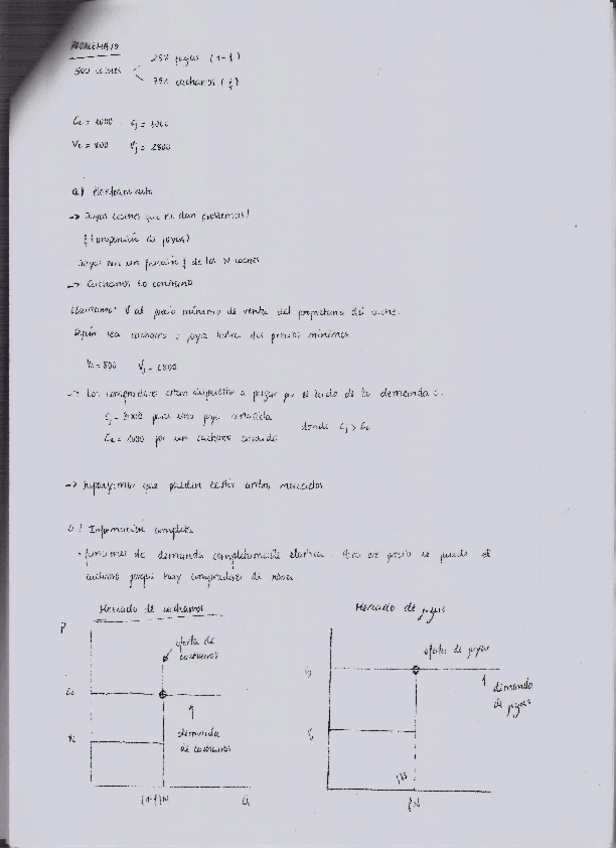 PROBLEMA 19
500 coches
25% joyas (1-f)
75% cacharros (f)
Cc = 1000 Cj = 3000
Vc = 800 Vj = 2800
a) Planteamiento
-> Joyas coches que no dan problemas
f (proporción de joyas)
Joyas son un fracción f de los N coches
-> Cacharros lo contrario
Llamamos V al precio mínimo de venta del propietario del coche.
Según sea cacharro o joya habrá dos precios mínimos
Vc = 800 Vj = 2800
-> Los compradores están dispuestos a pagar por el lado de la demanda C.
Cj = 3000 para una joya conocida
Cc = 1000 por un cacharro conocido
donde Cj > Cc
-> Supongamos que puedan existir ambos mercados
a) Información completa
· funciones de demanda completamente elástica. Para ese precio se puede el
cacharro porque hay compradores de
Mercado de cacharros
P
oferta de
cacharros
Cc
Vc
demanda
de cacharros
(1-f)N
Q
Mercado de joyas
oferta de joyas
demanda
de joyas
125
fN